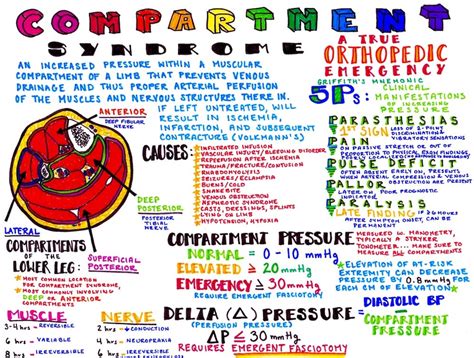 COMPARTMENT
SYNDROME
A TRUE
ORTHOPEDIC
EMERGENCY
AN INCREASED PRESSURE WITHIN A MUSCULAR
COMPARTMENT OF A LIMB THAT PREVENTS VENOUS
DRAINAGE AND THUS PROPER ARTERIAL PERFUSION
OF THE MUSCLES AND NERVOUS STRUCTURES THERE IN.
IF LEFT UNTREATED, WILL
RESULT IN ISCHEMIA,
INFARCTION, AND SUBSEQUENT
CONTRACTURE (VOLKMANN'S)
GRIFFITH'S MNEMONIC
5Ps:
CLINICAL
MANIFESTATIONS
OF INCREASING
PRESSURE
PARASTHESIAS
1ST SIGN
LOSS OF 2-POINT
DISCRIMINATION
VIBRATORY SENSATIONS
PAIN
ON PASSIVE STRETCH OR OUT OF
PROPORTION TO PHYSICAL EXAM FINDINGS,
PULSE DEFICIT
OFTEN PRESENT EARLY,
ABSENT WHEN
WHEN ARTERIAL COMPRESSION & VENOUS
OBSTRUCTION ARE PRESENT
PALLOR
LATER ON, POOR PROGNOSTIC
INDICATOR
PARALYSIS
LATE FINDING
IF > 6 HOURS
AFTER SYMPTOM ONSET, CAN
BE PERMANENT
ANTERIOR
DEEP FIBULAR
NERVE
DEEP
POSTERIOR
POSTERIOR
TIBIAL
NERVE
LATERAL
SUPERFICIAL
POSTERIOR
COMPARTMENTS
OF THE
LOWER LEG:
MOST COMMON LOCATION
FOR COMPARTMENT SYNDROME,
MOST COMMONLY INVOLVING
DEEP OR ANTERIOR
COMPARTMENTS
CAUSES:
INFILTRATED INFUSION
VASCULAR INJURY/BLEEDING DISORDER
REPERFUSION AFTER ISCHEMIA
TRAUMA/FRACTURE/CONTUSION
RHABDOMYOLYSIS
SEIZURES/ECLAMPSIA
BURNS/COLD
SNAKE BITE
VENOUS OBSTRUCTION
NEPHROTIC SYNDROME
CASTS, DRESSINGS, SPLINTS
LYING ON LIMB
HYPOTENSION, HYPOXIA
COMPARTMENT PRESSURE
NORMAL = 0 - 10 mmHg
ELEVATED ≥ 20 mmHg
EMERGENCY ≥ 30 mmHg
REQUIRE EMERGENT FASCIOTOMY
MEASURED W. MANOMETRY,
TYPICALLY A STRYKER
TONOMETER... MAKE SURE TO
MEASURE ALL COMPARTMENTS
ELEVATION OF AT-RISK
EXTREMITY CAN DECREASE
PRESSURE BY 0.8 mmHg FOR
EACH CM OF ELEVATION!
MUSCLE
3-4 hrs - REVERSIBLE
6 hrs - VARIABLE
8 hrs - IRREVERSIBLE
NERVE
2 hrs - CONDUCTION
4 hrs - NEUROPRAXIA
8 hrs - IRREVERSIBLE
DELTA (Δ) PRESSURE
(PERFUSION PRESSURE)
ΔP ≤ 30 mmHg
REQUIRES EMERGENT FASCIOTOMY
=
DIASTOLIC BP
-
COMPARTMENT
PRESSURE